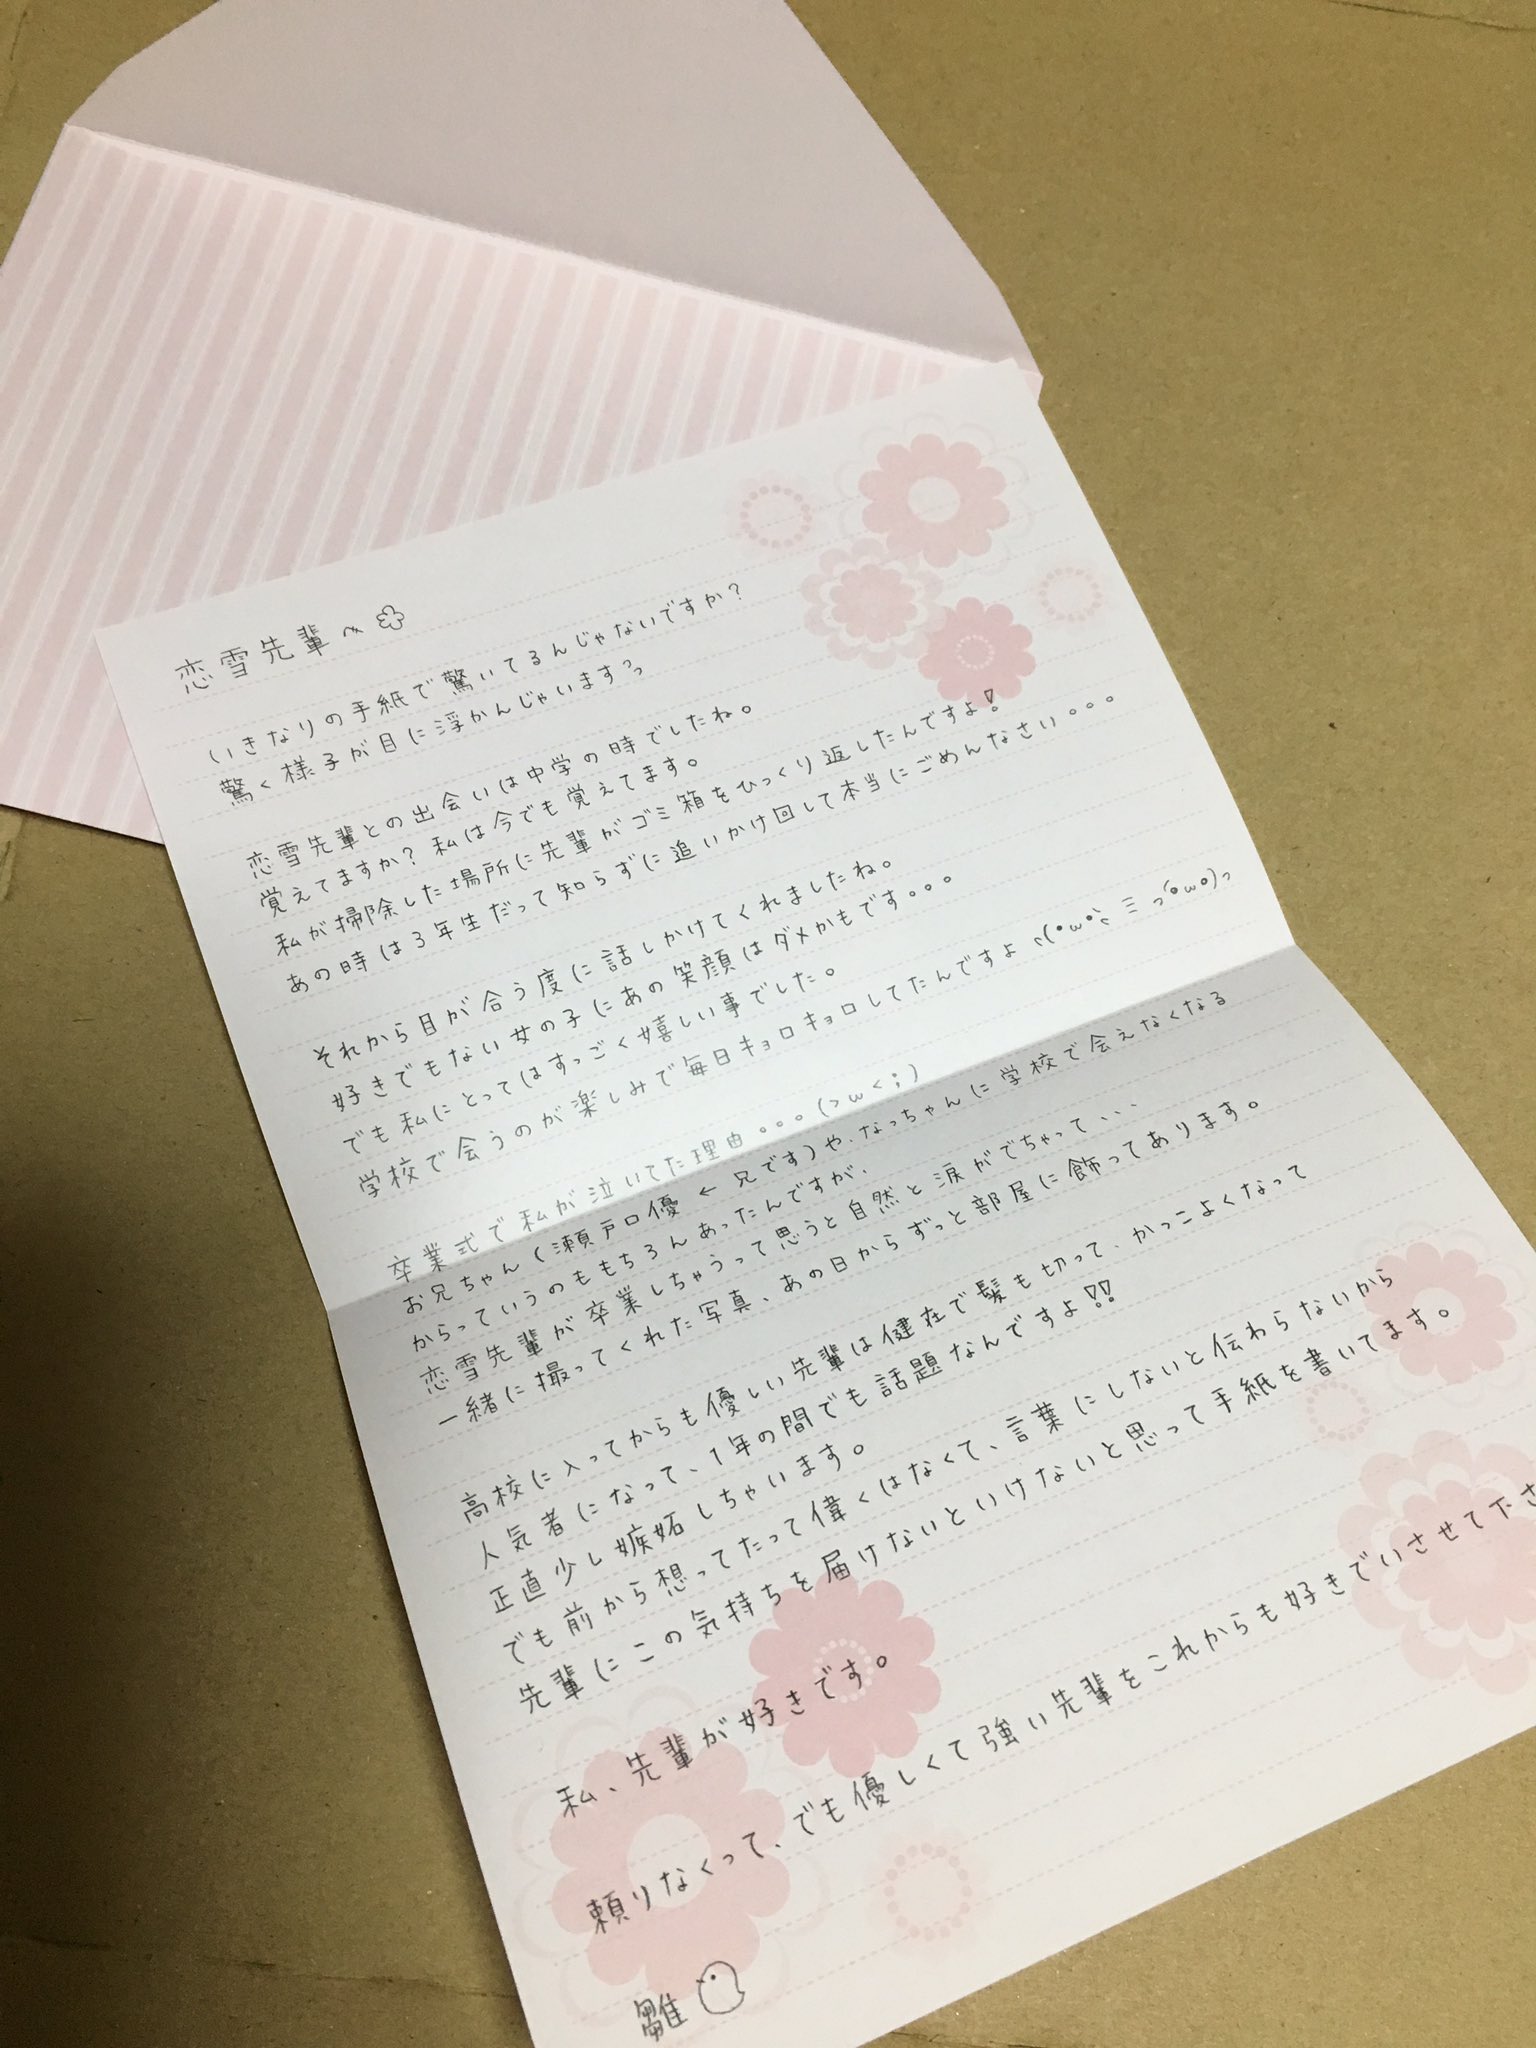 恋雪先輩へ
いきなりの手紙で驚いてるんじゃないですか？
驚く様子が目に浮かんじゃいますっ
恋雪先輩との出会いは中学の時でしたね。
覚えてますか？私は今でも覚えてます。
私が掃除した場所に先輩がゴミ箱をひっくり返したんですよ！
あの時は3年生だって知らずに追いかけ回して本当にごめんなさい。。。
それから目が合う度に話しかけてくれましたね。
好きでもない女の子にあの笑顔はダメかもです。。。
でも私にとってはすっごく嬉しい事でした。
学校で会うのが楽しみで毎日キョロキョロしてたんですよ
卒業式で私が泣いてた理由。。。(>ω<;)
お兄ちゃん(瀬戸口優←兄です)や、なっちゃんに学校で会えなくなる
からっていうのももちろんあったんですが、
恋雪先輩が卒業しちゃうって思うと自然と涙がでちゃって、、、
一緒に撮ってくれた写真、あの日からずっと部屋に飾ってあります。
高校に入ってからも優しい先輩は健在で髪も切って、かっこよくなって
人気者になって、1年の間でも話題なんですよ!!
正直少し嫉妬しちゃいます。
でも前から想ってたって偉くはなくて、言葉にしないと伝わらないから
先輩にこの気持ちを届けないといけないと思って手紙を書いてます。
私、先輩が好きです。
頼りなくって、でも優しくて強い先輩をこれからも好きでいさせて下さ
雛